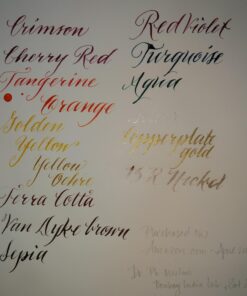 Crimson
Cherry Red
Tangerine
Orange
Golden
Yellow
Yellow
Ochre
Terra Cotta
Van Dyke brown
Sepia
Red Violet
Turquoise
Aqua
Copperplate
gold
Nickel
Purchased on
Amazon.com
Dr. Ph. Martins
Bombay India Ink